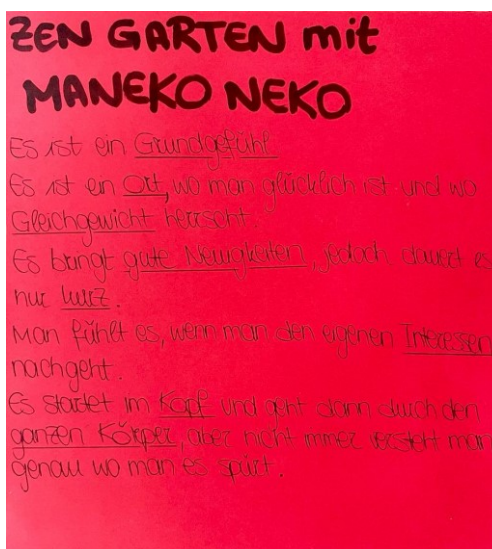 ZEN GARTEN mit
MANEKO NEKO
Es ist ein Grundgefühl
Es ist ein Ort, wo man glücklich ist und wo
Gleichgewicht herrscht.
Es bringt gute Neuigkeiten, jedoch dauert es
nur kurz.
Man fühlt es, wenn man den eigenen Interessen
nachgeht.
Es startet im Kopf und geht dann durch den
ganzen Körper, aber nicht immer versteht man
genau wo man es spürt.